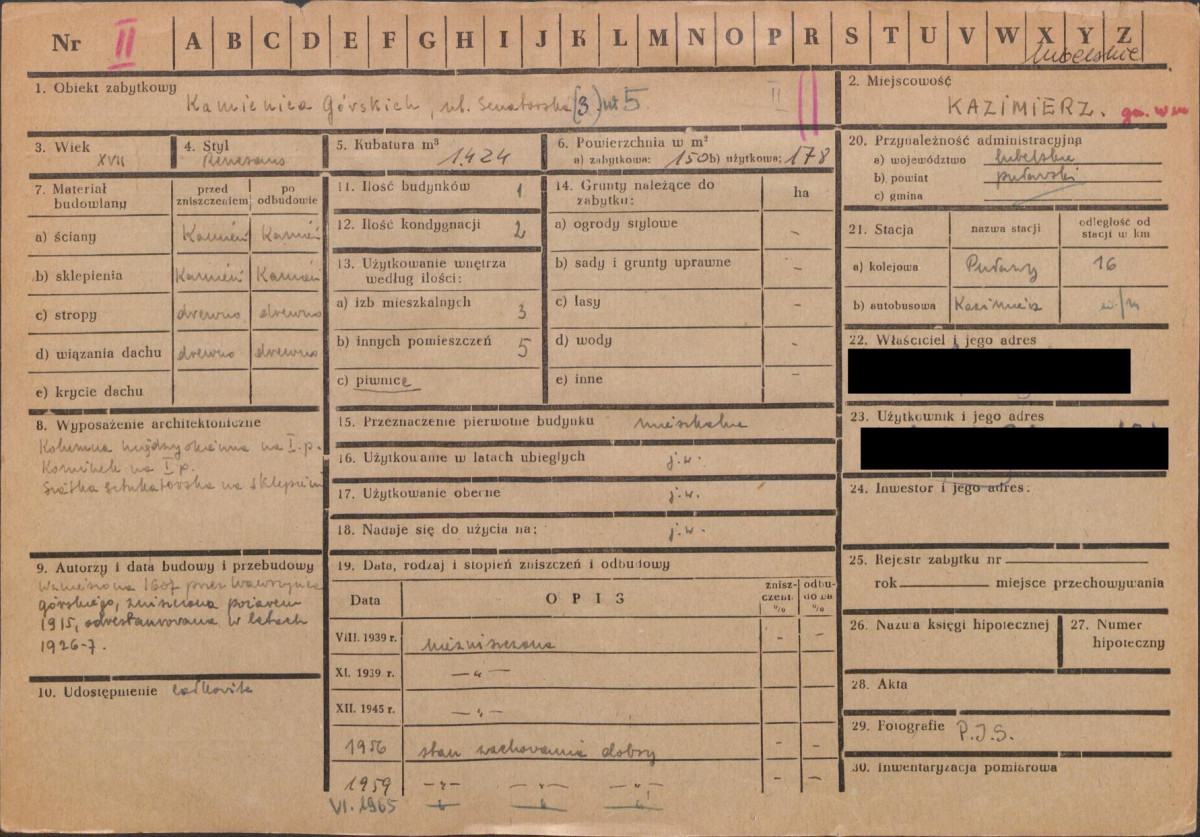 Nr II A B C D E F G H I J K L M N O P R S T U V W X Y Z
lubelskie
1. Obiekt zabytkowy Kamienica Górskich, ul. Senatorska (3) 5 II
2. Miejscowość
KAZIMIERZ.
3. Wiek XVII
4. Styl Renesans
5. Kubatura m³ 1424
6. Powierzchnia w m²
a) zabytkowa: 150 b) użytkowa: 178
20. Przynależność administracyjna
a) województwo lubelskie
b) powiat puławski
c) gmina
7. Materiał budowlany
przed zniszczeniem
po odbudowie
a) ściany Kamień Kamień
b) sklepienia Kamień Kamień
c) stropy drewno drewno
d) wiązania dachu drewno drewno
e) krycie dachu
11. Ilość budynków 1
12. Ilość kondygnacji 2
13. Użytkowanie wnętrza
według ilości:
a) izb mieszkalnych 3
b) innych pomieszczeń 5
c) piwnice
14. Grunty należące do
zabytku: ha
a) ogrody stylowe -
b) sady i grunty uprawne -
c) lasy -
d) wody -
e) inne -
21. Stacja nazwa stacji odległość od
stacji w km
a) kolejowa Puławy 16
b) autobusowa Kazimierz
22. Właściciel i jego adres
23. Użytkownik i jego adres
24. Inwestor i jego adres:
8. Wyposażenie architektoniczne
Kolumna międzyokienna na I. p.
Kominek na I p.
Siatka sztukatorska na sklepieniu
15. Przeznaczenie pierwotne budynku mieszkalne
16. Użytkowanie w latach ubiegłych j.w.
17. Użytkowanie obecne j.w.
18. Nadaje się do użycia na: j.w.
9. Autorzy i data budowy i przebudowy
Wzniesiona 1607 przez Wawrzyńca
górskiego, zniszczona pożarem
1915, odrestaurowana w latach
1926-7.
10. Udostępnienie całkowite
19. Data, rodzaj i stopień zniszczeń i odbudowy
Data OPIS
znisz-
czeń.
%
odbu-
dowa
%
VIII. 1939 r. niezniszczona - -
XI. 1939 r. —"—
XII. 1945 r. —"—
1956 stan zachowania dobry - -
1959 —"— —"— —"— - -
VI. 1965
25. Rejestr zabytku nr
rok miejsce przechowywania
26. Nazwa księgi hipotecznej
27. Numer
hipoteczny
28. Akta
29. Fotografie P.I.S.
30. Inwentaryzacja pomiarowa